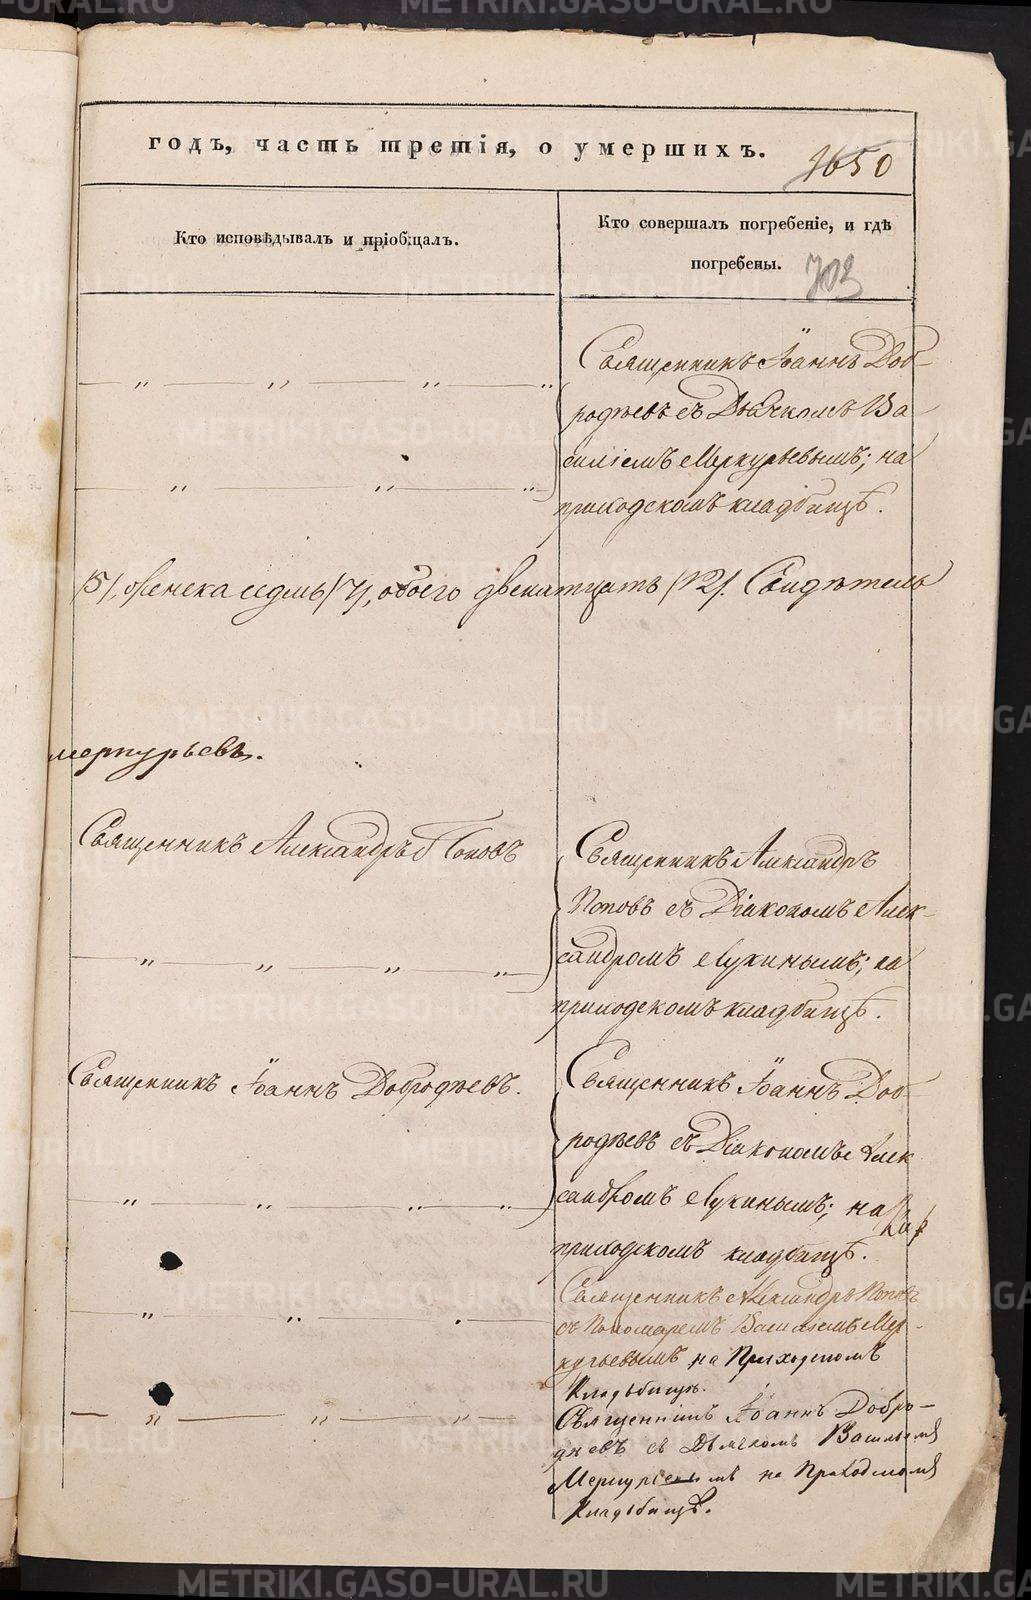 годъ, часть третія, о умершихъ.
1650
Кто исповѣдывалъ и пріобщалъ.
Кто совершалъ погребеніе, и гдѣ
погребены.
703
Священникъ Іоаннъ Доб-
родѣевъ съ Дьячкомъ Ва
силіемъ Меркурьевымъ; на
приходскомъ кладбищѣ.
/5/, женска седмь /7/, обоего двенатцать /12/. Свидѣтель
Меркурьевъ.
Священникъ Александръ Поповъ
Священникъ Александръ
Поповъ съ Діакономъ Алек-
сандромъ Лукинымъ; на
приходскомъ кладбищѣ.
Священникъ Іоаннъ Добродѣевъ.
Священникъ Іоаннъ Доб-
родѣевъ съ Діакономъ Алек
сандромъ Лукинымъ; на
приходскомъ кладбищѣ.
Священникъ Александръ Поповъ
съ Пономаремъ Василіемъ Мер-
курьевымъ на Приходскомъ
Кладбищѣ.
Священникъ Іоаннъ Добро-
дѣевъ съ Дьячкомъ Васильемъ
Меркурьевымъ на Приходскомъ
Кладбищѣ.
METRIKI.GASO-URAL.RU